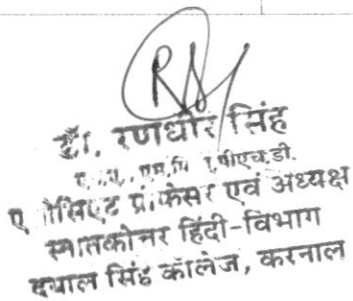 RS
डॉ. रणधीर सिंह
एम.ए., एम.फिल, पीएच.डी.
एसोसिएट प्रोफेसर एवं अध्यक्ष
स्नातकोत्तर हिंदी-विभाग
दयाल सिंह कॉलेज, करनाल